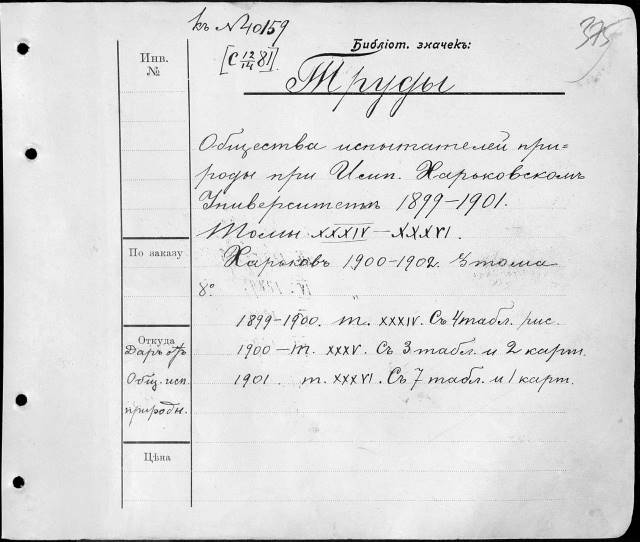 къ № 40159
[С 12/14 81]
Библіот. значекъ:
375
Инв.
№
Труды
Общества испытателей при=
роды при Имп. Харьковскомъ
Университетѣ 1899–1901.
Томы XXXIV–XXXVI.
По заказу
Харьковъ 1900–1902. 3 тома
8º
1899–1900. т. XXXIV. Съ 4 табл. рис.
Откуда
Даръ отъ
Общ. исп.
природы.
1900 – т. XXXV. Съ 3 табл. и 2 карт.
1901. т. XXXVI. Съ 7 табл. и 1 карт.
Цѣна